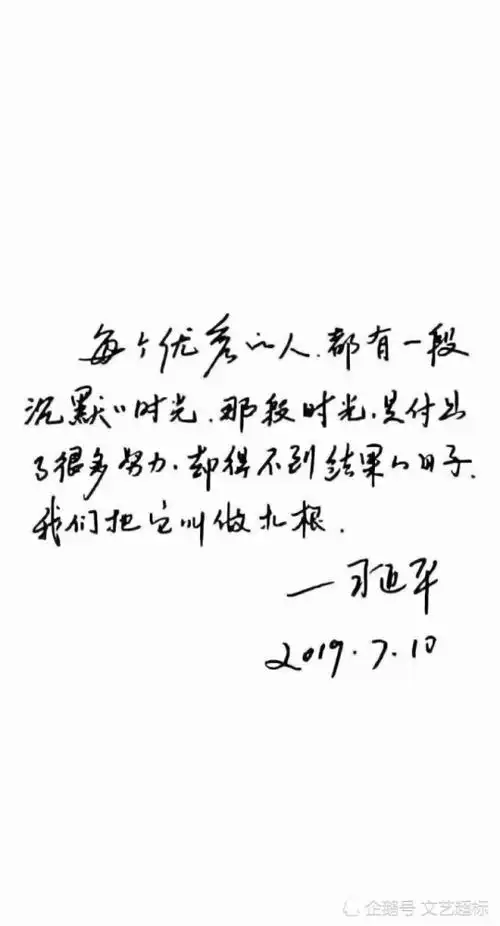 每个优秀的人,都有一段
沉默的时光.那段时光,是付出
了很多努力,却得不到结果的日子.
我们把它叫做扎根.
一习近平
2019.7.10
企鹅号 文艺超标